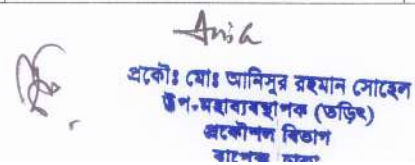 Anis
প্রকৌঃ মোঃ আনিসুর রহমান সোহেল
উপ-মহাব্যবস্থাপক (তড়িৎ)
প্রকৌশল বিভাগ
ঢাকা